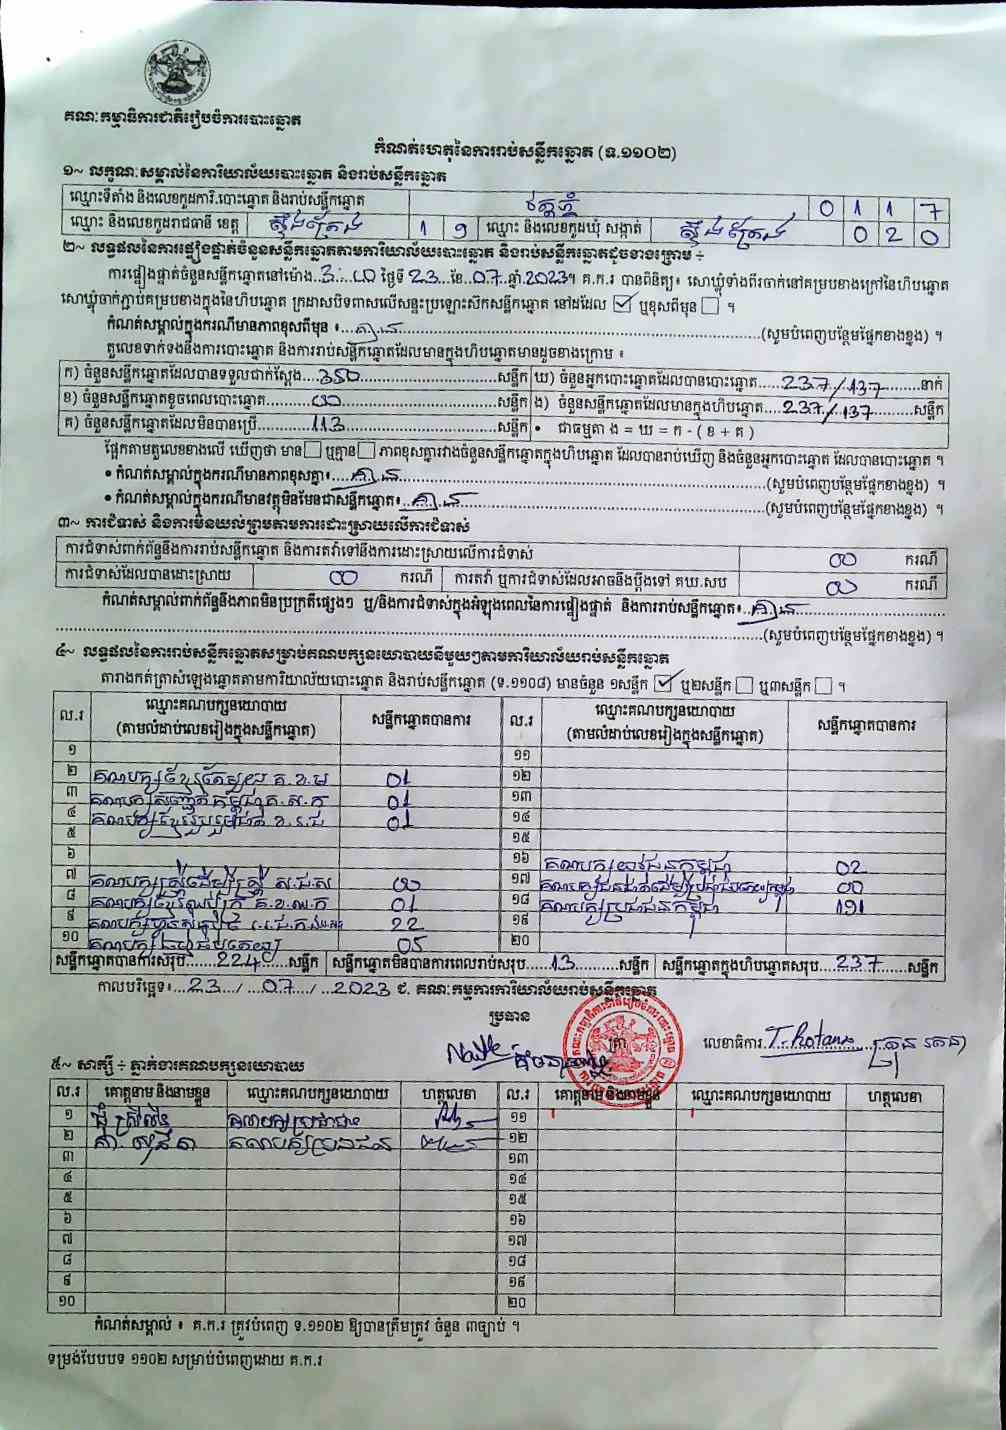 គណៈកម្មាធិការជាតិរៀបចំការបោះឆ្នោត
កំណត់ហេតុនៃការរាប់សន្លឹកឆ្នោត (ទ.១១០២)
១~ លក្ខណៈសម្គាល់នៃការិយាល័យបោះឆ្នោត និងរាប់សន្លឹកឆ្នោត
ឈ្មោះទីតាំង និងលេខកូដការិ.បោះឆ្នោត និងរាប់សន្លឹកឆ្នោត 0 1 1 7
ឈ្មោះ និងលេខកូដរាជធានី ខេត្ត ស្ទឹងត្រែង 1 9 ឈ្មោះ និងលេខកូដឃុំ សង្កាត់ ស្ទឹងត្រែង 0 2 0
២~ លទ្ធផលនៃការផ្ទៀងផ្ទាត់ចំនួនសន្លឹកឆ្នោតតាមការិយាល័យបោះឆ្នោត និងរាប់សន្លឹកឆ្នោតដូចខាងក្រោម ÷
ការផ្ទៀងផ្ទាត់ចំនួនសន្លឹកឆ្នោតនៅម៉ោង 3:00 ថ្ងៃទី 23 ខែ 07 ឆ្នាំ 2023។ គ.ក.រ បានពិនិត្យ៖ សោឃ្នុំទាំងពីរចាក់នៅគម្របខាងក្រៅនៃហិបឆ្នោត
សោឃ្នុំចាក់ភ្ជាប់គម្របខាងក្នុងនៃហិបឆ្នោត ក្រដាសបិទពាសលើសន្ទះប្រឡោះសិកសន្លឹកឆ្នោត នៅដដែល ☑ ឬខុសពីមុន ☐ ។
កំណត់សម្គាល់ក្នុងករណីមានភាពខុសពីមុន ៖ គ្មាន (សូមបំពេញបន្ថែមផ្នែកខាងខ្នង) ។
តួលេខទាក់ទងនឹងការបោះឆ្នោត និងការរាប់សន្លឹកឆ្នោតដែលមានក្នុងហិបឆ្នោតមានដូចខាងក្រោម ៖
ក) ចំនួនសន្លឹកឆ្នោតដែលបានទទួលជាក់ស្តែង 350 សន្លឹក ឃ) ចំនួនអ្នកបោះឆ្នោតដែលបានបោះឆ្នោត 237/137 នាក់
ខ) ចំនួនសន្លឹកឆ្នោតខូចពេលបោះឆ្នោត 00 សន្លឹក ង) ចំនួនសន្លឹកឆ្នោតដែលមានក្នុងហិបឆ្នោត 237/137 សន្លឹក
គ) ចំនួនសន្លឹកឆ្នោតដែលមិនបានប្រើ 113 សន្លឹក • ជាធម្មតា ង = ឃ = ក - ( ខ + គ )
ផ្អែកតាមតួលេខខាងលើ ឃើញថា មាន ☐ ឬគ្មាន ☐ ភាពខុសគ្នារវាងចំនួនសន្លឹកឆ្នោតក្នុងហិបឆ្នោត ដែលបានរាប់ឃើញ និងចំនួនអ្នកបោះឆ្នោត ដែលបានបោះឆ្នោត ។
• កំណត់សម្គាល់ក្នុងករណីមានភាពខុសគ្នា៖ គ្មាន (សូមបំពេញបន្ថែមផ្នែកខាងខ្នង) ។
• កំណត់សម្គាល់ក្នុងករណីមានវត្ថុមិនមែនជាសន្លឹកឆ្នោត៖ គ្មាន (សូមបំពេញបន្ថែមផ្នែកខាងខ្នង) ។
៣~ ការជំទាស់ និងការមិនយល់ព្រមតាមការដោះស្រាយលើការជំទាស់
ការជំទាស់ពាក់ព័ន្ធនឹងការរាប់សន្លឹកឆ្នោត និងការតវ៉ាទៅនឹងការដោះស្រាយលើការជំទាស់ 00 ករណី
ការជំទាស់ដែលបានដោះស្រាយ 00 ករណី ការតវ៉ា ឬការជំទាស់ដែលអាចនឹងប្តឹងទៅ គឃ.សប 00 ករណី
កំណត់សម្គាល់ពាក់ព័ន្ធនឹងភាពមិនប្រក្រតីផ្សេងៗ ឬ/និងការជំទាស់ក្នុងអំឡុងពេលនៃការផ្ទៀងផ្ទាត់ និងការរាប់សន្លឹកឆ្នោត៖ គ្មាន
(សូមបំពេញបន្ថែមផ្នែកខាងខ្នង) ។
៤~ លទ្ធផលនៃការរាប់សន្លឹកឆ្នោតសម្រាប់គណបក្សនយោបាយនីមួយៗតាមការិយាល័យរាប់សន្លឹកឆ្នោត
តារាងកត់ត្រាសំឡេងឆ្នោតតាមការិយាល័យបោះឆ្នោត និងរាប់សន្លឹកឆ្នោត (ទ.១១០៨) មានចំនួន ១សន្លឹក ☑ ឬ២សន្លឹក ☐ ឬ៣សន្លឹក ☐ ។
ល.រ ឈ្មោះគណបក្សនយោបាយ (តាមលំដាប់លេខរៀងក្នុងសន្លឹកឆ្នោត) សន្លឹកឆ្នោតបានការ ល.រ ឈ្មោះគណបក្សនយោបាយ (តាមលំដាប់លេខរៀងក្នុងសន្លឹកឆ្នោត) សន្លឹកឆ្នោតបានការ
១ ១១
២ គណបក្សខ្មែរតែមួយ គ.ខ.ម 01 ១២
៣ 01 ១៣
៤ គណបក្សខ្មែររួបរួមជាតិ ខ.រ.ជ 01 ១៤
៥ ១៥
៦ ១៦ គណបក្សយុវជនកម្ពុជា 02
៧ គណបក្សស្រ្តីដើម្បីស្ត្រី ស.ជ.ស 00 ១៧ 00
៨ 01 ១៨ គណបក្សប្រជាជនកម្ពុជា 191
៩ គណបក្សហ្វ៊ុនស៊ិនប៉ិច 22 ១៩
១០ 05 ២០
សន្លឹកឆ្នោតបានការសរុប 224 សន្លឹក សន្លឹកឆ្នោតមិនបានការពេលរាប់សរុប 13 សន្លឹក សន្លឹកឆ្នោតក្នុងហិបឆ្នោតសរុប 237 សន្លឹក
កាលបរិច្ឆេទ៖ 23 / 07 / 2023 ជ. គណៈកម្មការការិយាល័យរាប់សន្លឹកឆ្នោត
ប្រធាន
ត្រា
លេខាធិការ
៥~ សាក្សី ÷ ភ្នាក់ងារគណបក្សនយោបាយ
ល.រ គោត្តនាម និងនាមខ្លួន ឈ្មោះគណបក្សនយោបាយ ហត្ថលេខា ល.រ គោត្តនាម និងនាមខ្លួន ឈ្មោះគណបក្សនយោបាយ ហត្ថលេខា
១ គណបក្សប្រជាជន ១១
២ គណបក្សប្រជាជន ១២
៣ ១៣
៤ ១៤
៥ ១៥
៦ ១៦
៧ ១៧
៨ ១៨
៩ ១៩
១០ ២០
កំណត់សម្គាល់ ៖ គ.ក.រ ត្រូវបំពេញ ទ.១១០២ ឱ្យបានត្រឹមត្រូវ ចំនួន ៣ច្បាប់ ។
ទម្រង់បែបបទ ១១០២ សម្រាប់បំពេញដោយ គ.ក.រ